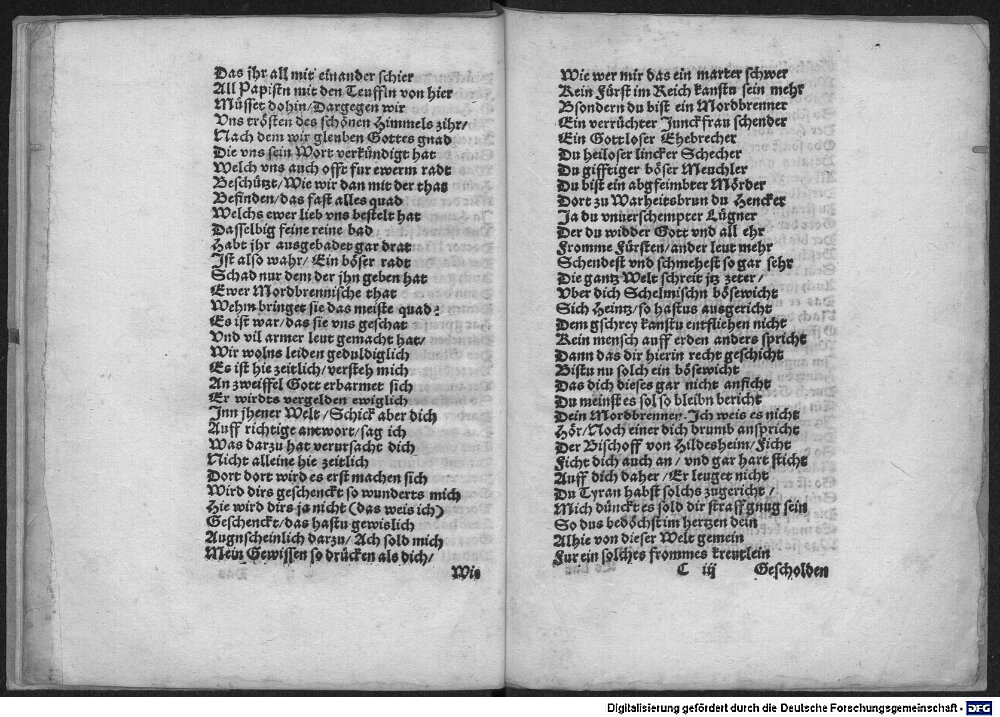 Das jhr all mit einander schier
All Papistn mit den Teuffln von hier
Müsset dohin/Dargegen wir
Vns trösten des schönen Himmels zihr/
Nach dem wir gleuben Gottes gnad
Die vns sein Wort verkündigt hat
Welch vns auch offt fur ewerm radt
Beschützt/Wie wir dan mit der that
Befinden/das fast alles quad
Welchs ewer lieb vns bestelt hat
Dasselbig feine reine bad
Habt jhr ausgebadet gar drat
Ist also wahr/Ein böser radt
Schad nur dem der jhn geben hat
Ewer Mordbrennische that
Wehm bringet sie das meiste quad?
Es ist war/das sie vns geschat
Vnd vil armer leut gemacht hat/
Wir wolns leiden geduldiglich
Es ist hie zeitlich/versteh mich
An zweiffel Gott erbarmet sich
Er wirdts vergelden ewiglich
Inn jhener Welt/Schick aber dich
Auff richtige antwort/sag ich
Was darzu hat verursacht dich
Nicht alleine hie zeitlich
Dort dort wird es erst machen sich
Wird dirs geschenckt so wunderts mich
Hie wird dirs ja nicht (das weis ich)
Geschenckt/das hastu gewislich
Augnscheinlich darzu/Ach sold mich
Mein Gewissen so drücken als dich/
Wie
Wie wer mir das ein marter schwer
Kein Fürst im Reich kanstu sein mehr
Bsondern du bist ein Mordbrenner
Ein verrüchter Junckfrau schender
Ein Gottloser Ehebrecher
Du heiloser lincker Schecher
Du gifftiger böser Meuchler
Du bist ein abgfeimbter Mörder
Dort zu Warheitsbrun du Hencker
Ja du vnuerschempter Lügner
Der du widder Gott vnd all ehr
Fromme Fürsten/ander leut mehr
Schendest vnd schmehest so gar sehr
Die gantz Welt schreit jtz zeter/
Vber dich Schelmischn bösewicht
Sich Heintz/so hastus ausgericht
Dem gschrey kanstu entfliehen nicht
Kein mensch auff erden anders spricht
Dann das dir hierin recht geschicht
Bistu nu solch ein bösewicht
Das dich dieses gar nicht anficht
Du meinst es sol so bleibn bericht
Dein Mordbrennen. Ich weis es nicht
Hör/Noch einer dich drumb anspricht
Der Bischoff von Hildesheim/Ficht
Ficht dich auch an/vnd gar hart sticht
Auff dich daher/Er leuget nicht
Du Tyran habst solchs zugericht/
Mich dünckt es sold dir straff gnug sein
So dus bedöchst im hertzen dein
Alhie von dieser Welt gemein
Fur ein solches frommes kreutlein
C iij Gescholden
Digitalisierung gefördert durch die Deutsche Forschungsgemeinschaft - DFG